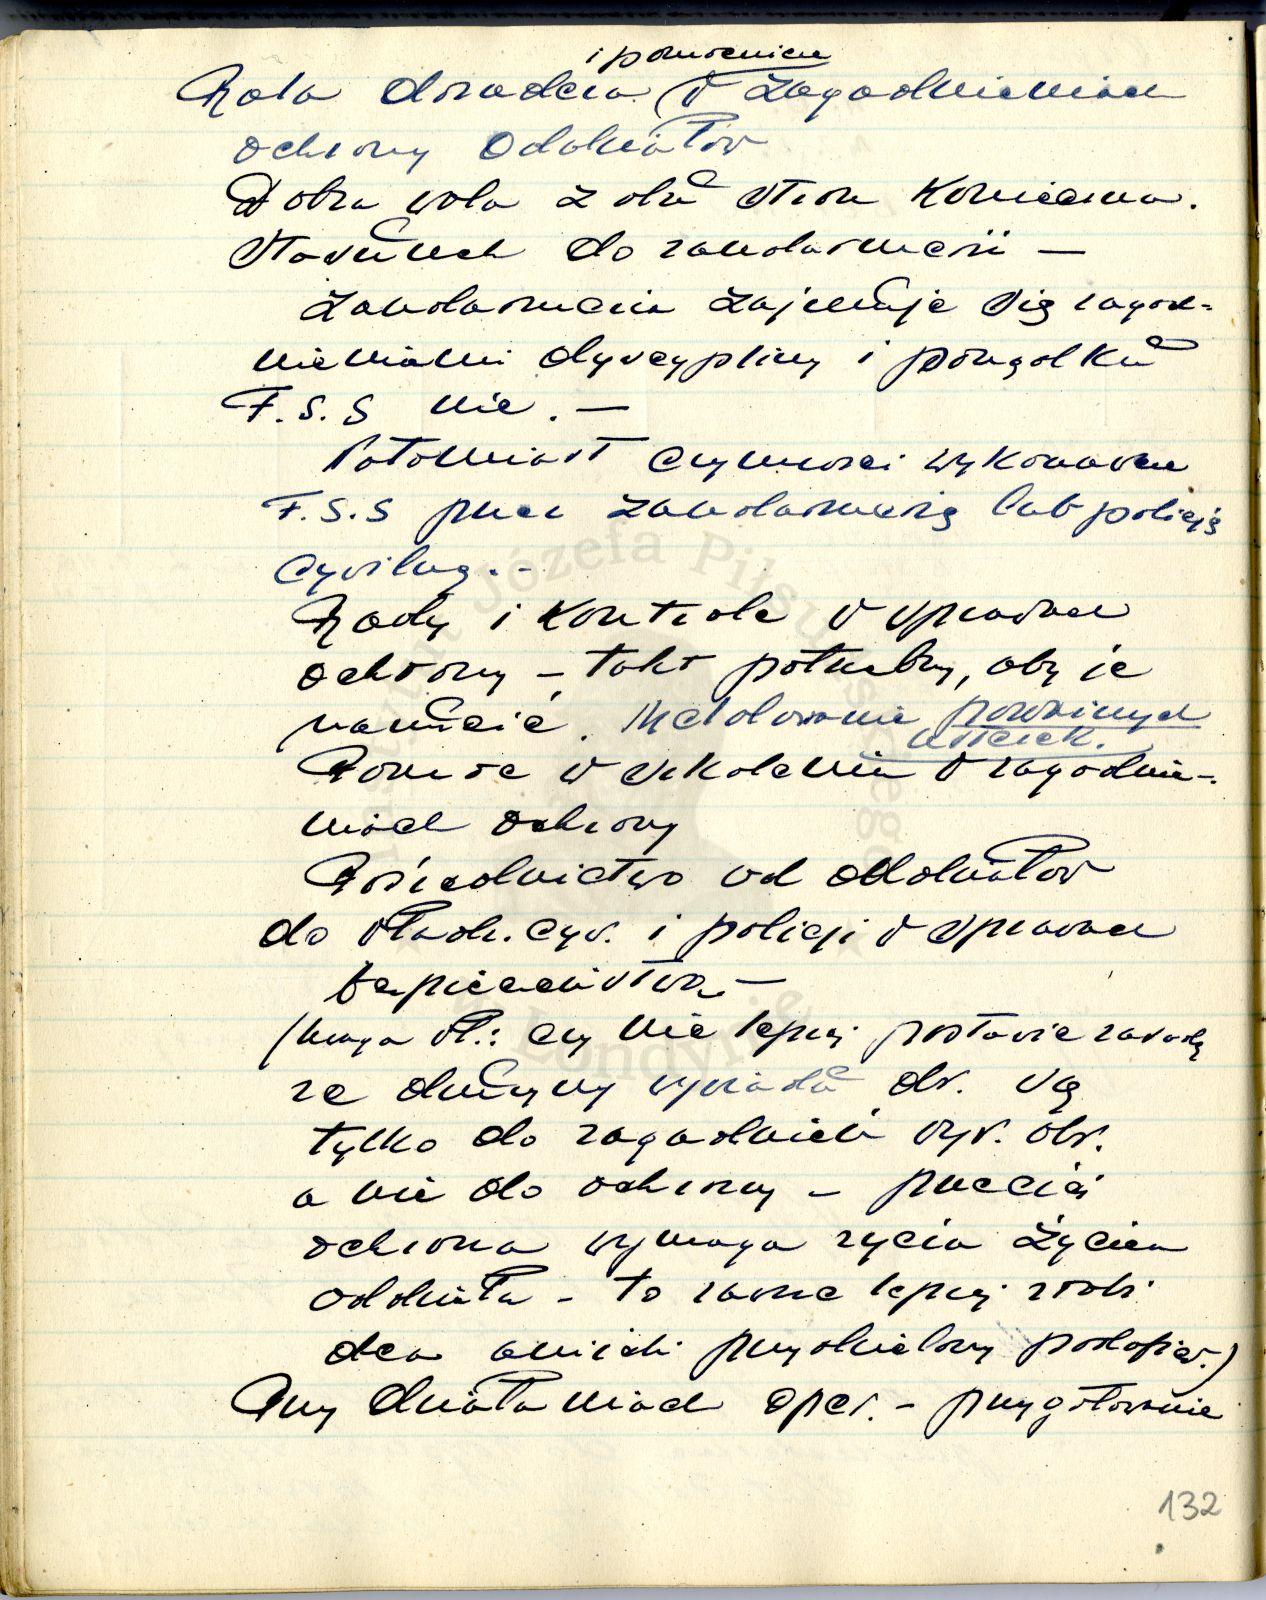 i pomocnicza
Rola doradcza w zagadnieniach
ochrony oddziałów
Dobra wola z obu stron konieczna.
Stosunek do żandarmerii —
Żandarmeria zajmuje się zagad-
nieniami dyscypliny i porządku
F.S.S nie. —
Natomiast czynności wykonawcze
F.S.S przez żandarmerię lub policję
cywilną. -
Rady i kontrole w sprawach
ochrony – takt potrzebny, aby je
narzucić. Meldowanie poważnych
uciecz.
Pomoc w szkoleniu w zagadnie-
niach ochrony
Pośrednictwo od oddziałów
do władz. cyw. i policji w sprawach
bezpieczeństwa. —
(Uwaga Wł.: czy nie lepiej postawić zasadę
że drużyny wywiadu dz. są
tylko do zagadnień wyw. obr.
a nie do ochrony – przecież
ochrona wymaga życia życiem
oddziału – to zawsze lepiej zrobi
dca aniżeli przydzielony podofic.)
Przy działaniach oper. – przygotowanie
132
Józefa Piłsudskiego
w Londynie